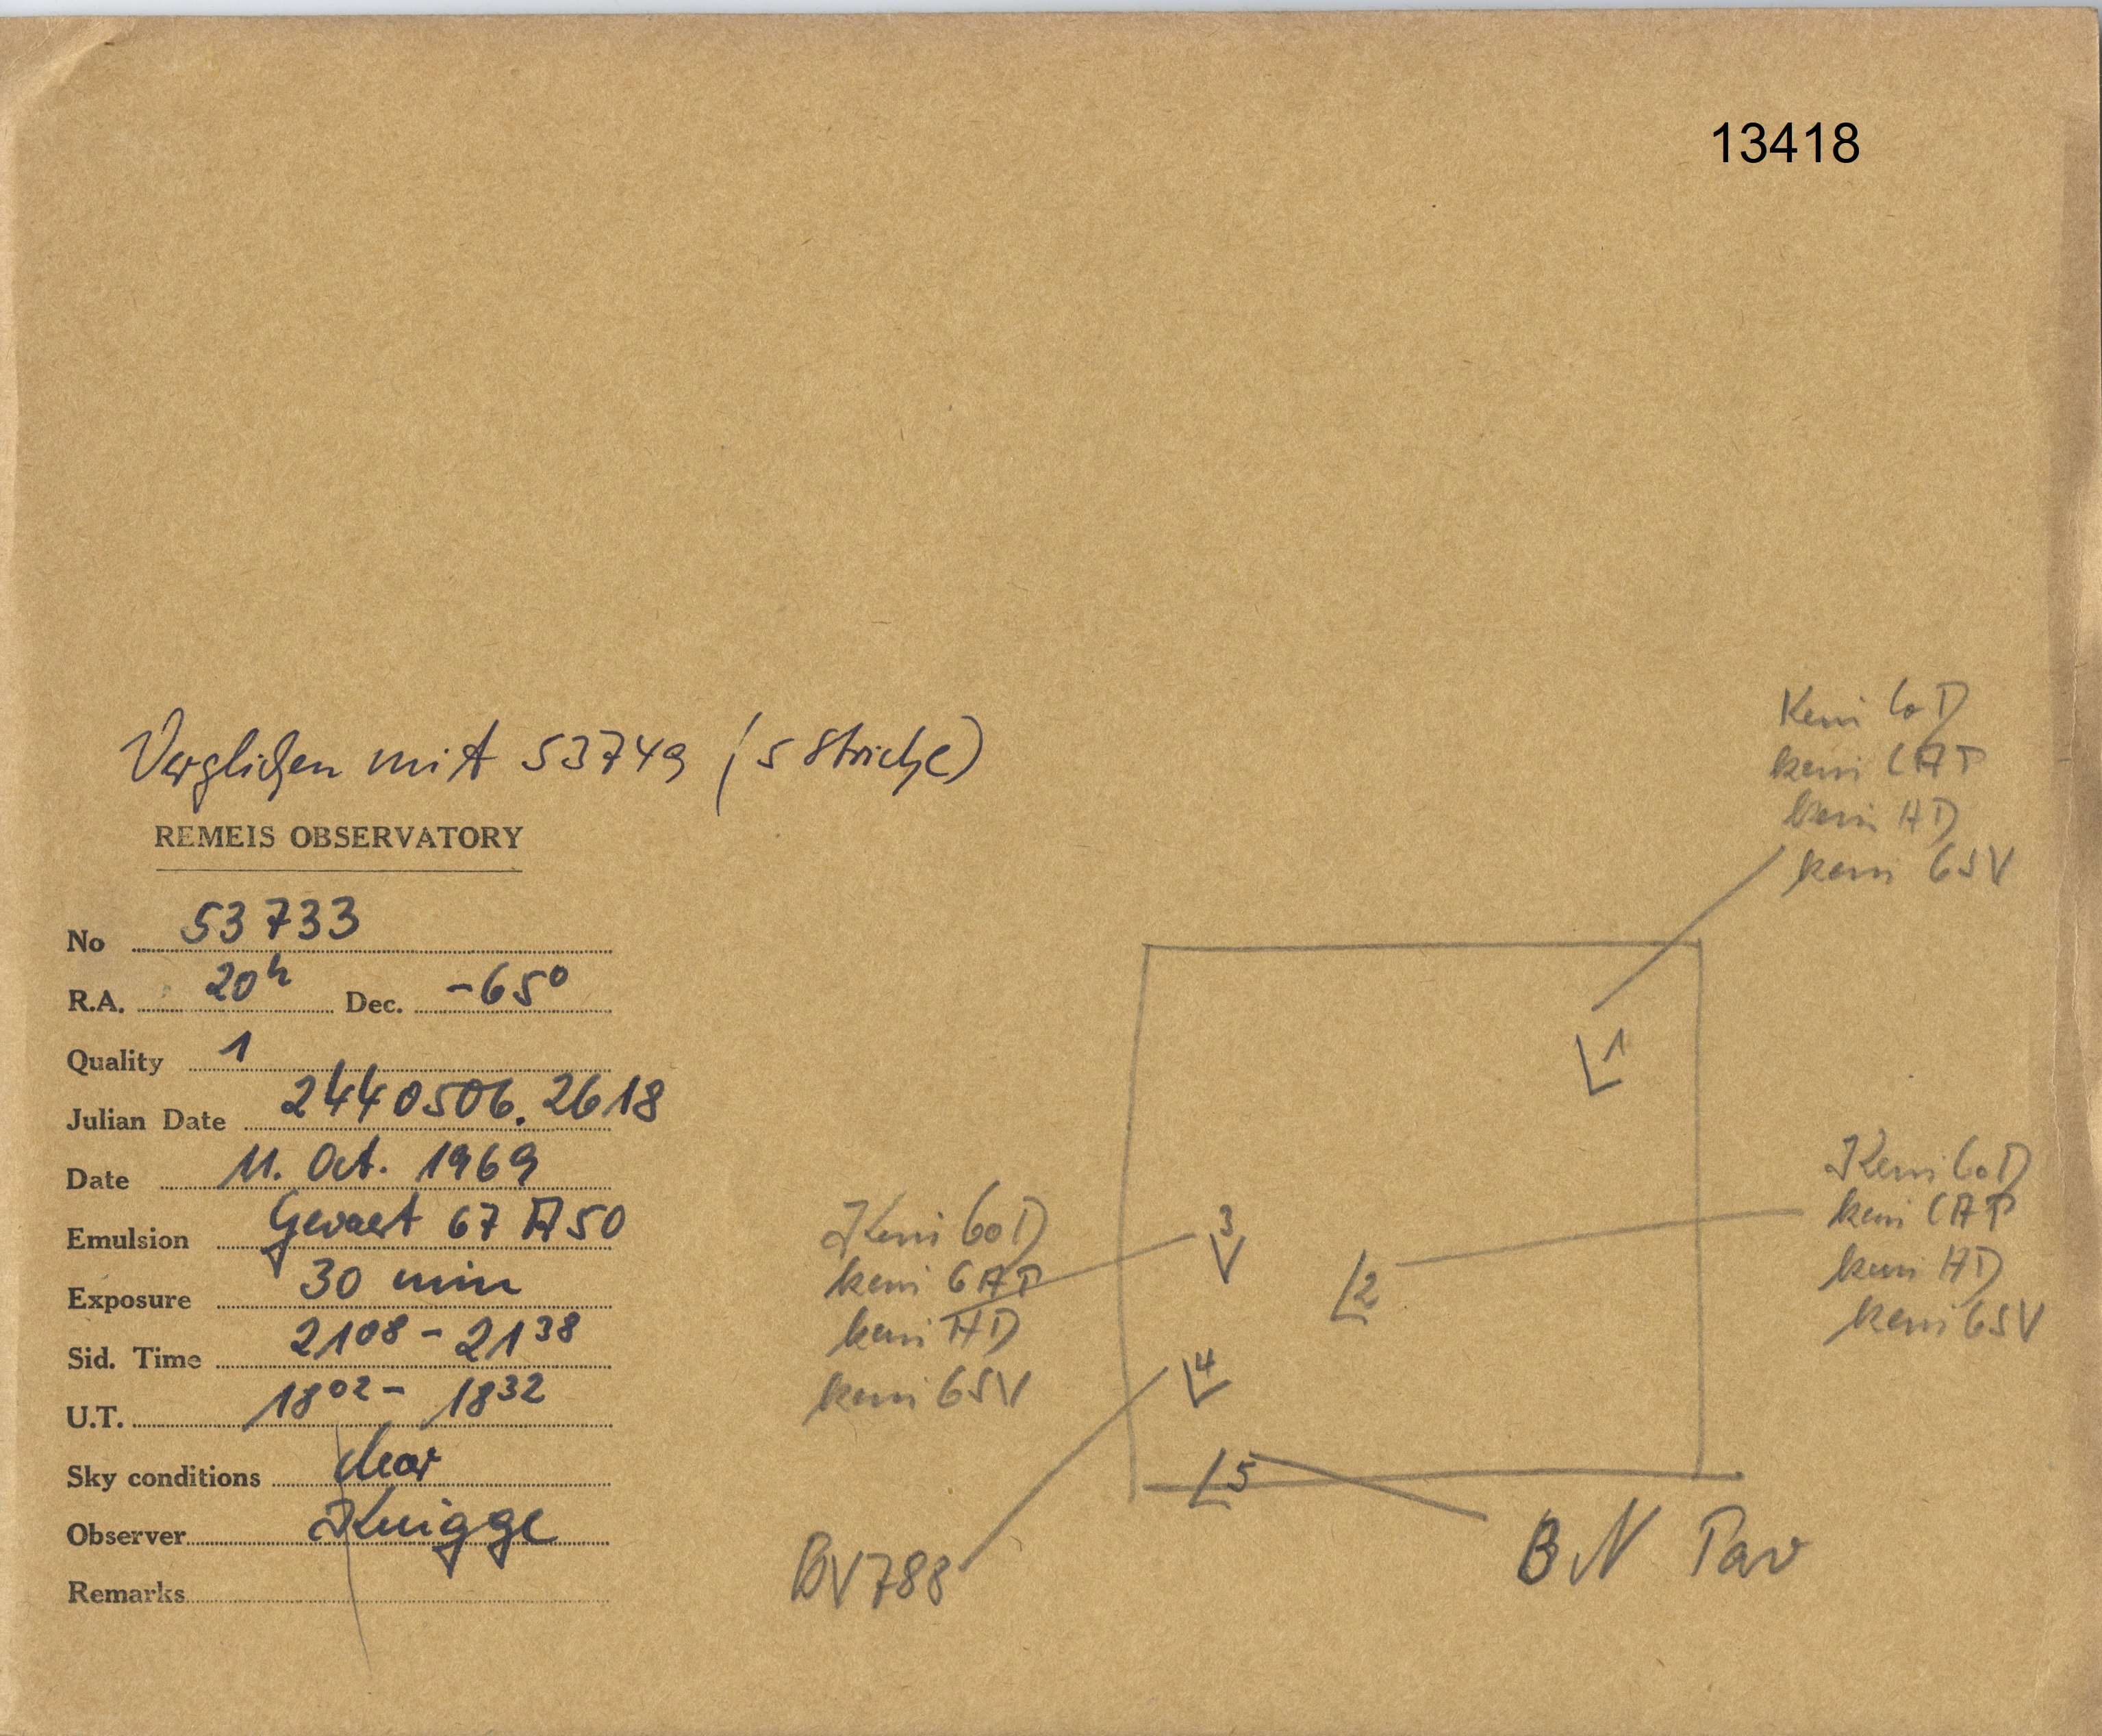 13418
Verglichen mit 53749 (5 Striche)
REMEIS OBSERVATORY
No 53733
R.A. 20h Dec. -65°
Quality 1
Julian Date 2440506.2618
Date 11. Oct. 1969
Emulsion Gevaert 67 A 50
Exposure 30 min
Sid. Time 21 08 - 21 38
U.T. 18 02 - 18 32
Sky conditions clear
Observer Knigge
Remarks
Kein CoD
kein CAP
kein HD
kein GSV
1
Kein CoD
kein CAP
kein HD
kein GSV
3
2
Kein CoD
kein CAP
kein HD
kein GSV
4
5
BV788
BN Pav